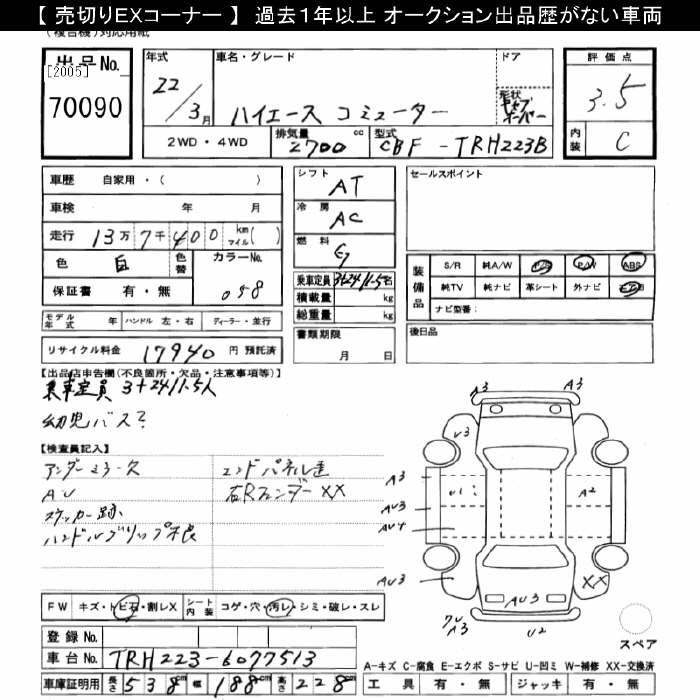 【 売切りEXコーナー 】 過去1年以上 オークション出品歴がない車両
(複合機)対応用紙
出品No.
[2005]
70090
年式
22/3月
車名・グレード
ハイエース コミューター
ドア
形状
評価点
3.5
内装
C
2WD・4WD
排気量
2700
cc
型式
CBF-TRH223B
車歴 自家用・( )
車検 年 月
走行 13万7千400 km マイル( )
色 白
色替
カラーNo.
058
保証書 有・無
モデル年式 年
ハンドル 左・右
ディーラー・並行
リサイクル料金 17940 円 預託済
シフト
AT
冷房
AC
燃料
乗車定員 3+24/1.5名
積載量 kg
総重量 kg
書類期限
月 日
セールスポイント
装備品
S/R 純A/W P/S P/W ABS
純TV 純ナビ 革シート 外ナビ エアB
ナビ型番:
後日品
【出品店申告欄(不良箇所・欠品・注意事項等)】
乗車定員 3+24/1.5人
幼児バス?
【検査員記入】
アンダーミラース
AU
ステッカー跡
ハンドルグリップ不良
エンドパネル逢
右Rフェンダー XX
A3
A3
U3
A3
AU3
AU4
U1
A2
AU3
AU3
XX
A3
U2
FW キズ・トビ石・割レX
シート内装 コゲ・穴・汚レ・シミ・破レ・スレ
登録No.
車台No. TRH223-6077513
車庫証明用 長さ 538cm 幅 188cm 高さ 228cm
スペア
A-キズ C-腐食 E-エクボ S-サビ U-凹ミ W-補修 XX-交換済
工具 有・無 ジャッキ 有・無